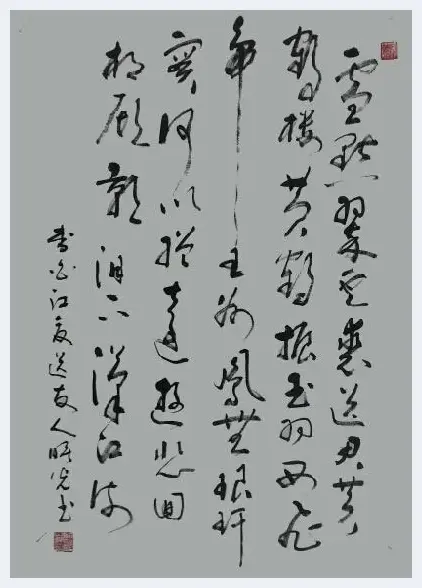 雪點翠雲裘送君黄
鶴樓黄鶴振玉羽西飛
帝王州鳳無琅玕
實何以贈遠遊回
相顧影泪下漢江流
白江夏送友人書